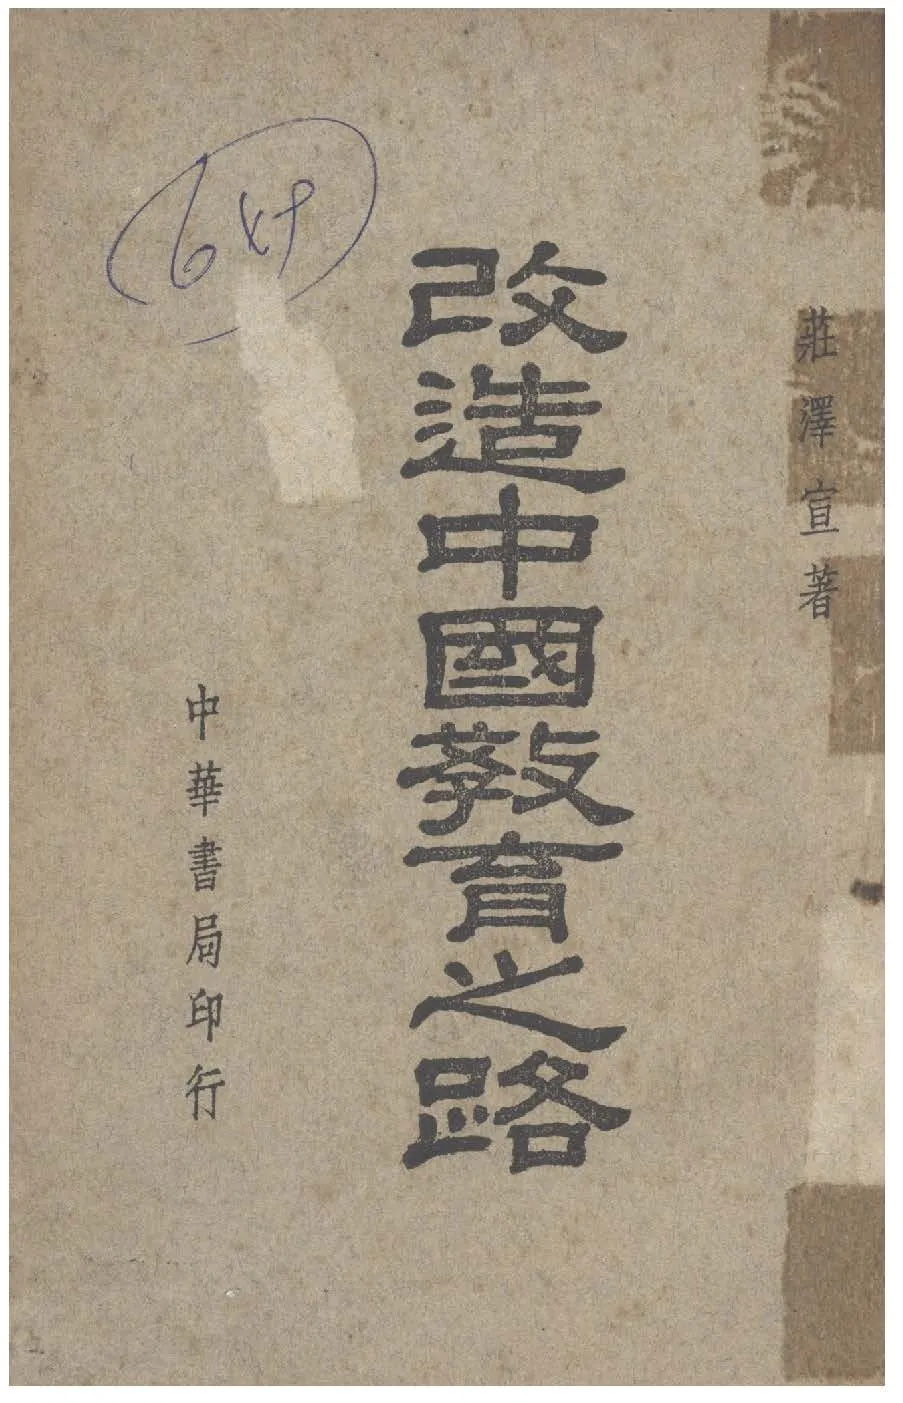 莊澤宣著
改造中國教育之路
中華書局印行